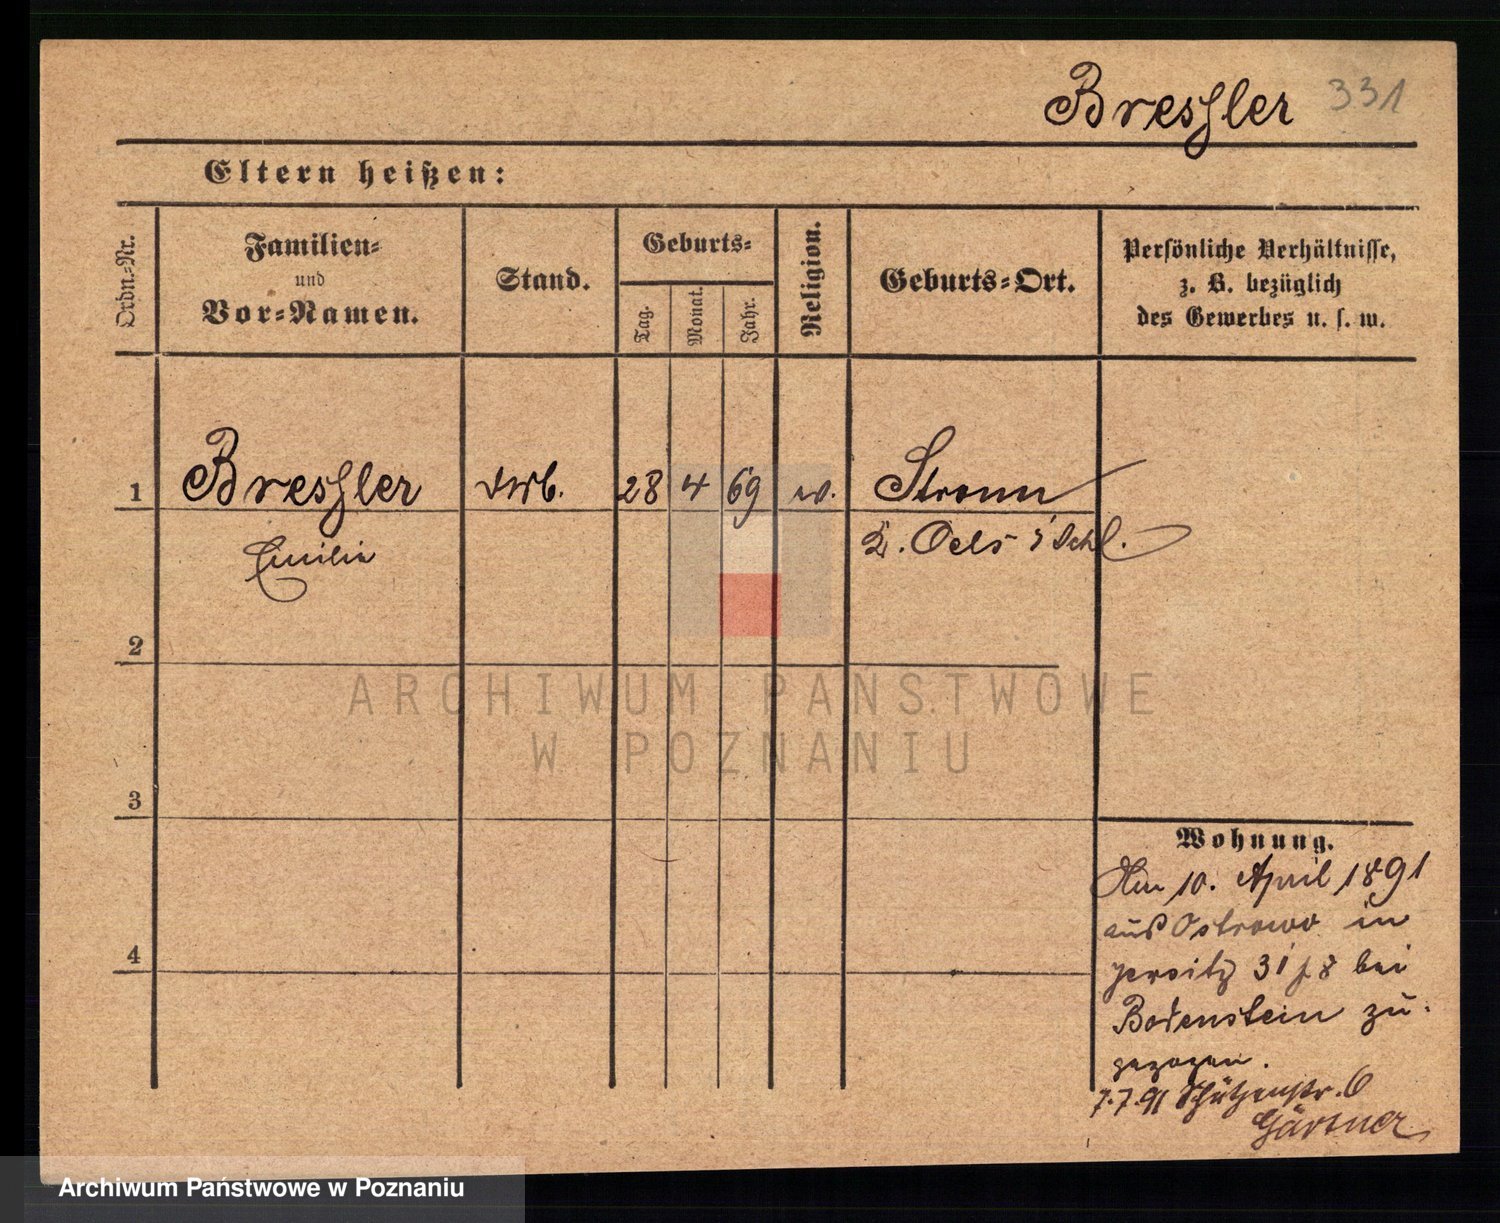 Bressler 331
Eltern heißen:
Ordn.-Nr.
Familien-
und
Vor-Namen.
Stand.
Geburts-
Tag.
Monat.
Jahr.
Religion.
Geburts-Ort.
Persönliche Verhältnisse,
z. B. bezüglich
des Gewerbes u. s. w.
1 Bressler 28 4 69 Stronn
Emilie
Oels i Schl.
2
3
4
ARCHIWUM PAŃSTWOWE
W POZNANIU
Wohnung.
Am 10. April 1891
aus Ostrowo in
Jersitz 31 bei
Bodenstein zu-
gezogen.
7.7.91 Schützenstr. 6
Gärtner
Archiwum Państwowe w Poznaniu